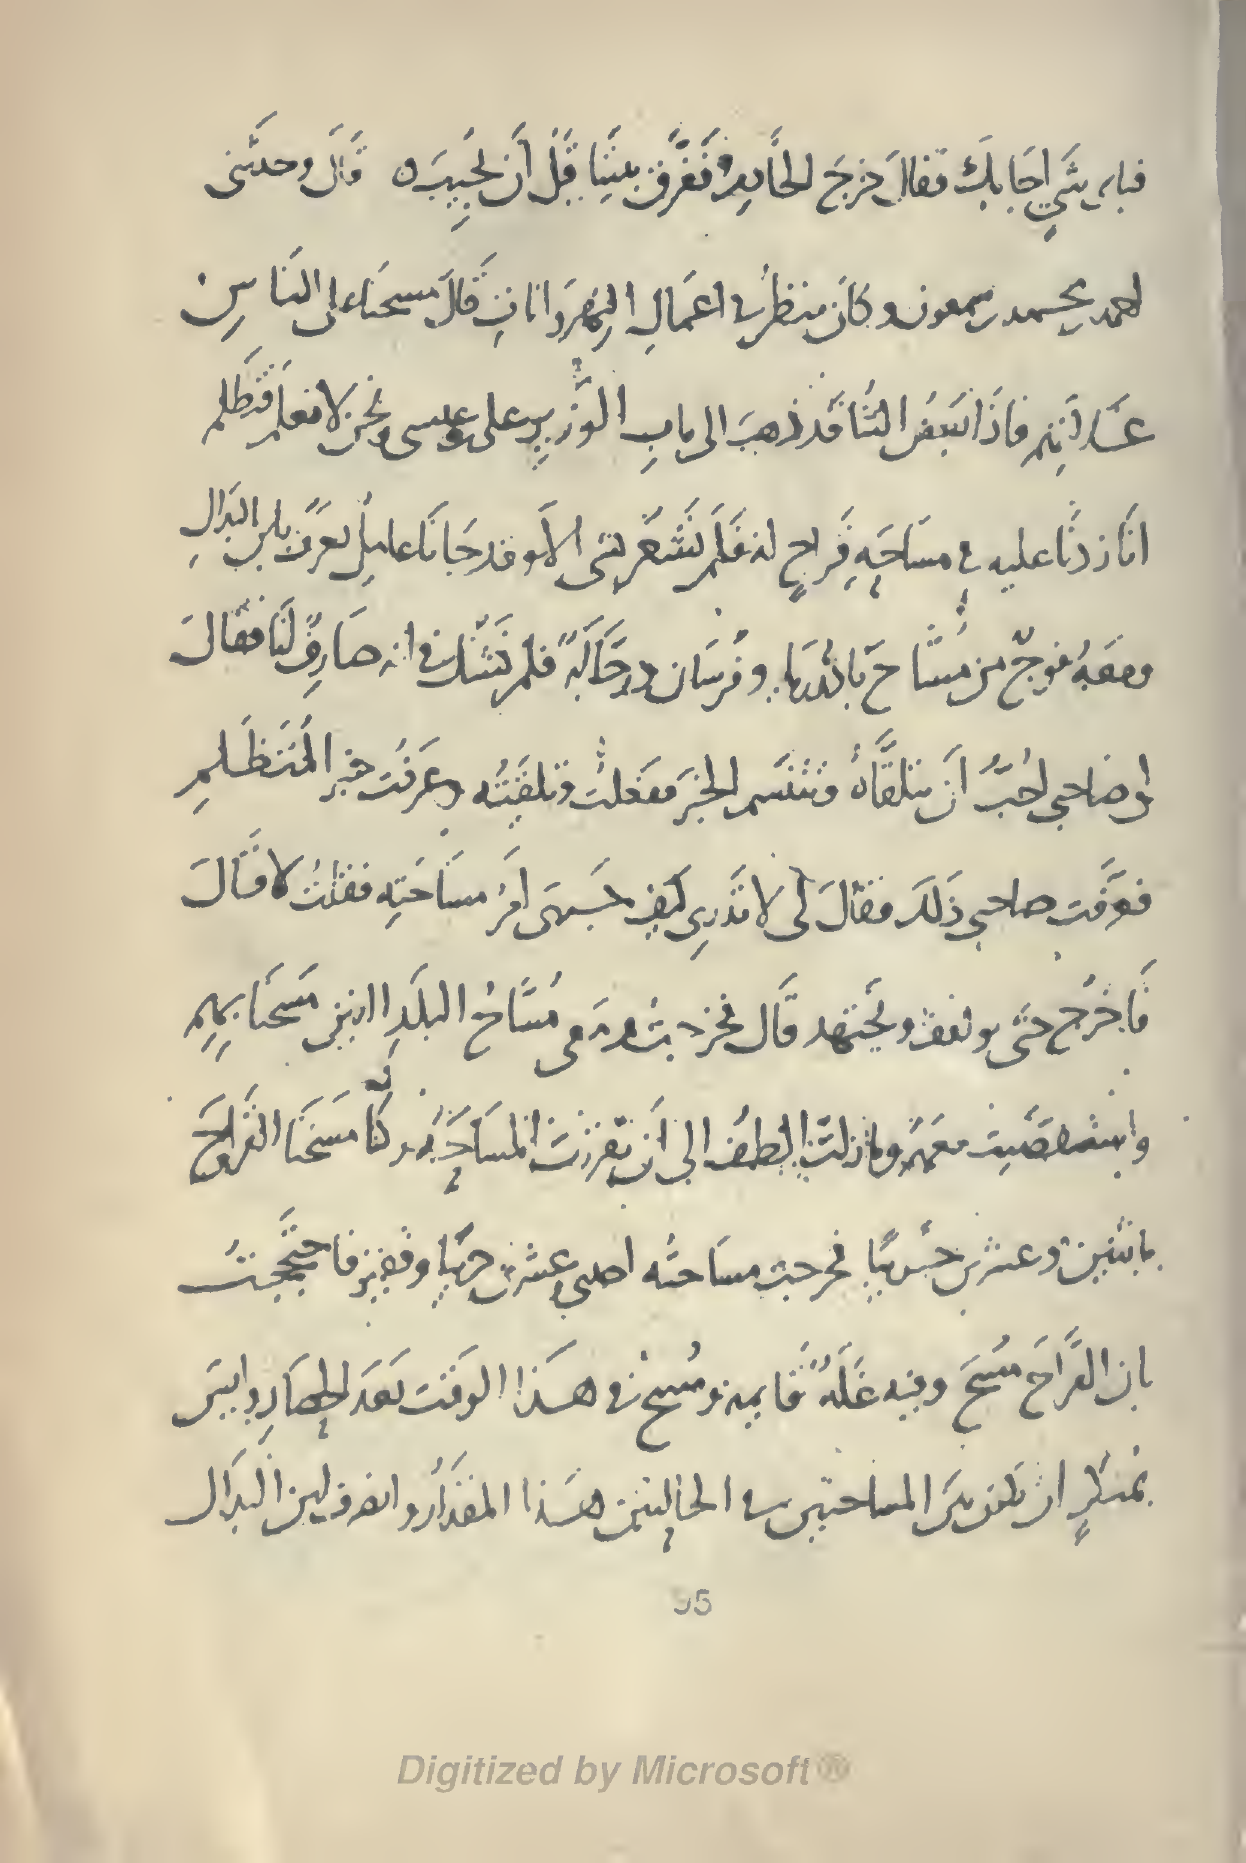 فبأي شيءٍ اجابك فقال خرج الحاجب وفَرَّق بيننا قبل أن يجيبه قال وحدثنى
احمد بن محمد بن سمعون وكان ينظر فى اعمال النهروانات قال مسحنا على الناس
غلاتهم فاذا ببعض التناء قد ذهب الى باب الوزير على بن عيسى ونحن لا نعلم فتظلم
انا زدنا عليه في مساحة قراح له فلم نشعر بشى الا وقد جانا عامل يعرف بابن البذال
ومعه فوج من مساح بادوريا وفرسان ورجالة فلم نشك فى انه صارف لنا فقال
لى صاحبى احب أن تتلقاه وتتنسم الخبر ففعلت وتلقيته وعرفت خبر المتظلم
فعرّفت صاحبى ذلك فقال لى لا تدرى كيف جرى أمر مساحته فقلت لا قال
فاخرج حتى توافقه وتجتهد قال فخرجت ومعى مساح البلد الذين مسحنا بهم
واستقصيت معهم وما زلت الطف الى أن تقررت المساحة وكنا مسحنا القراح
باثنين وعشرين جريبًا فخرجت مساحته احدى وعشرين جريبًا وقفيز فاحتججت
بان القراح مُسِحَ وفيه غَلّة قايمة ومُسح فى هذا الوقت بعد الحصاد وليس
بمنكر ان يكون بين المساحتين فى الحالين هذا المقدار وانصرف ابن البذال
95
Digitized by Microsoft®